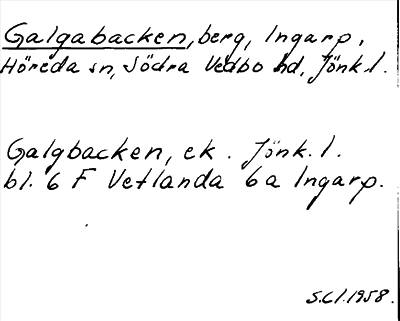 Galgabacken, berg, Ingarp,
Höreda sn, Södra Vedbo hd, Jönk.l.
Galgbacken, ek. Jönk.l.
bl. 6 F Vetlanda 6a Ingarp.
S.Cl.1958.